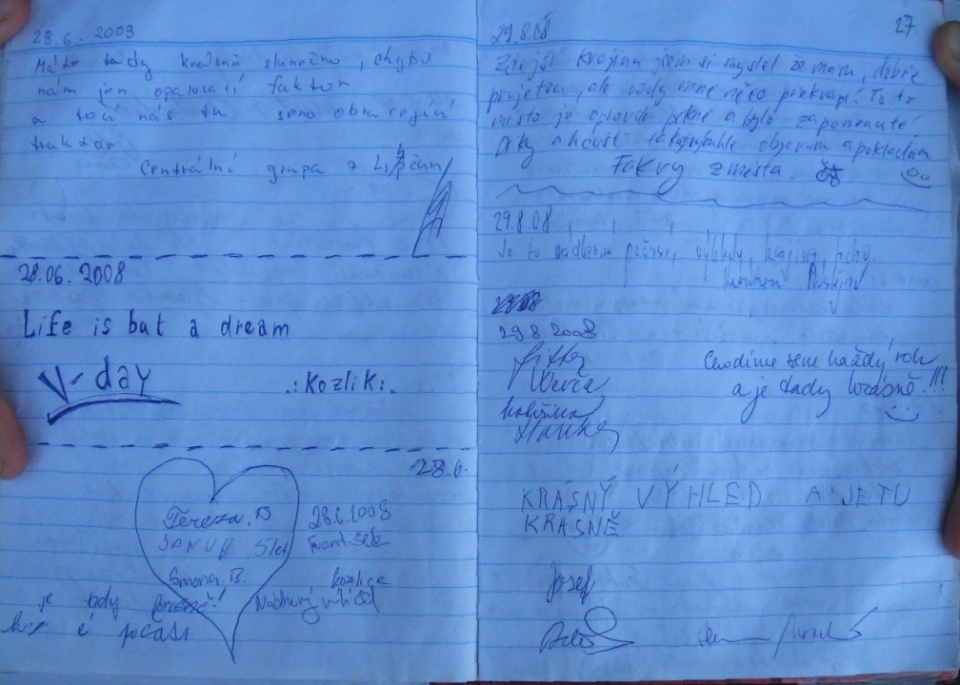 28.6.2008
Máte tady krásně slunečno, chybí
nám jen opalovací faktor
a točí nás tu seno obracející
traktor
Centrální grupa z
28.06.2008
Life is but a dream
V-day .:Kozlik:.
28.6.
Tereza. B 28.6.2008
JAKUB 5let František
Simona. B. Kozlice
je tady krásně! Nádherný
é počasí
27
29.8.08
Zdejší krajinu jsem si myslel že mám dobře
projetou, ale vždy mne něco překvapí. Toto
místo je opravdu pěkné a bylo zapomenuté
Díky a houšť objevům a pokladům
z města.
29.8.08
Je to nádherné počasí, výhledy, krajina,
29.8.2008
Verča
Hanka
Chodíme sem každý rok
a je tady krásně!!!
KRÁSNÝ VÝHLED A JE TU
KRÁSNĚ
Josef